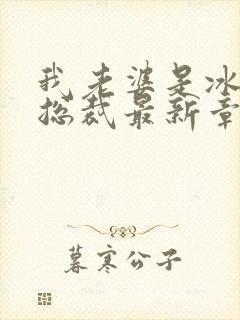 我老婆是冰
总裁最新章
暮寒公子